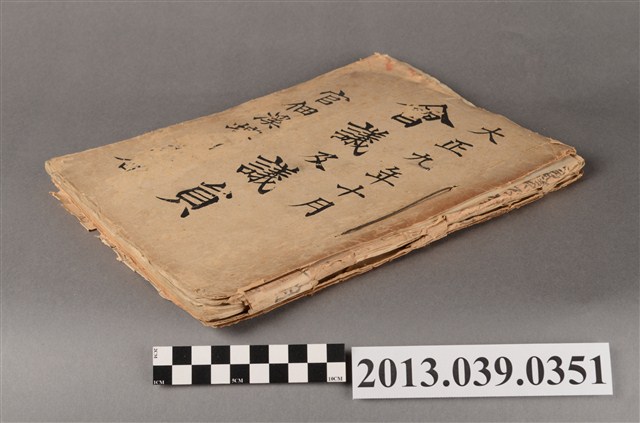 大正九年十月
會議及議員
官佃溪
2013.039.0351
1CM
5CM
10CM